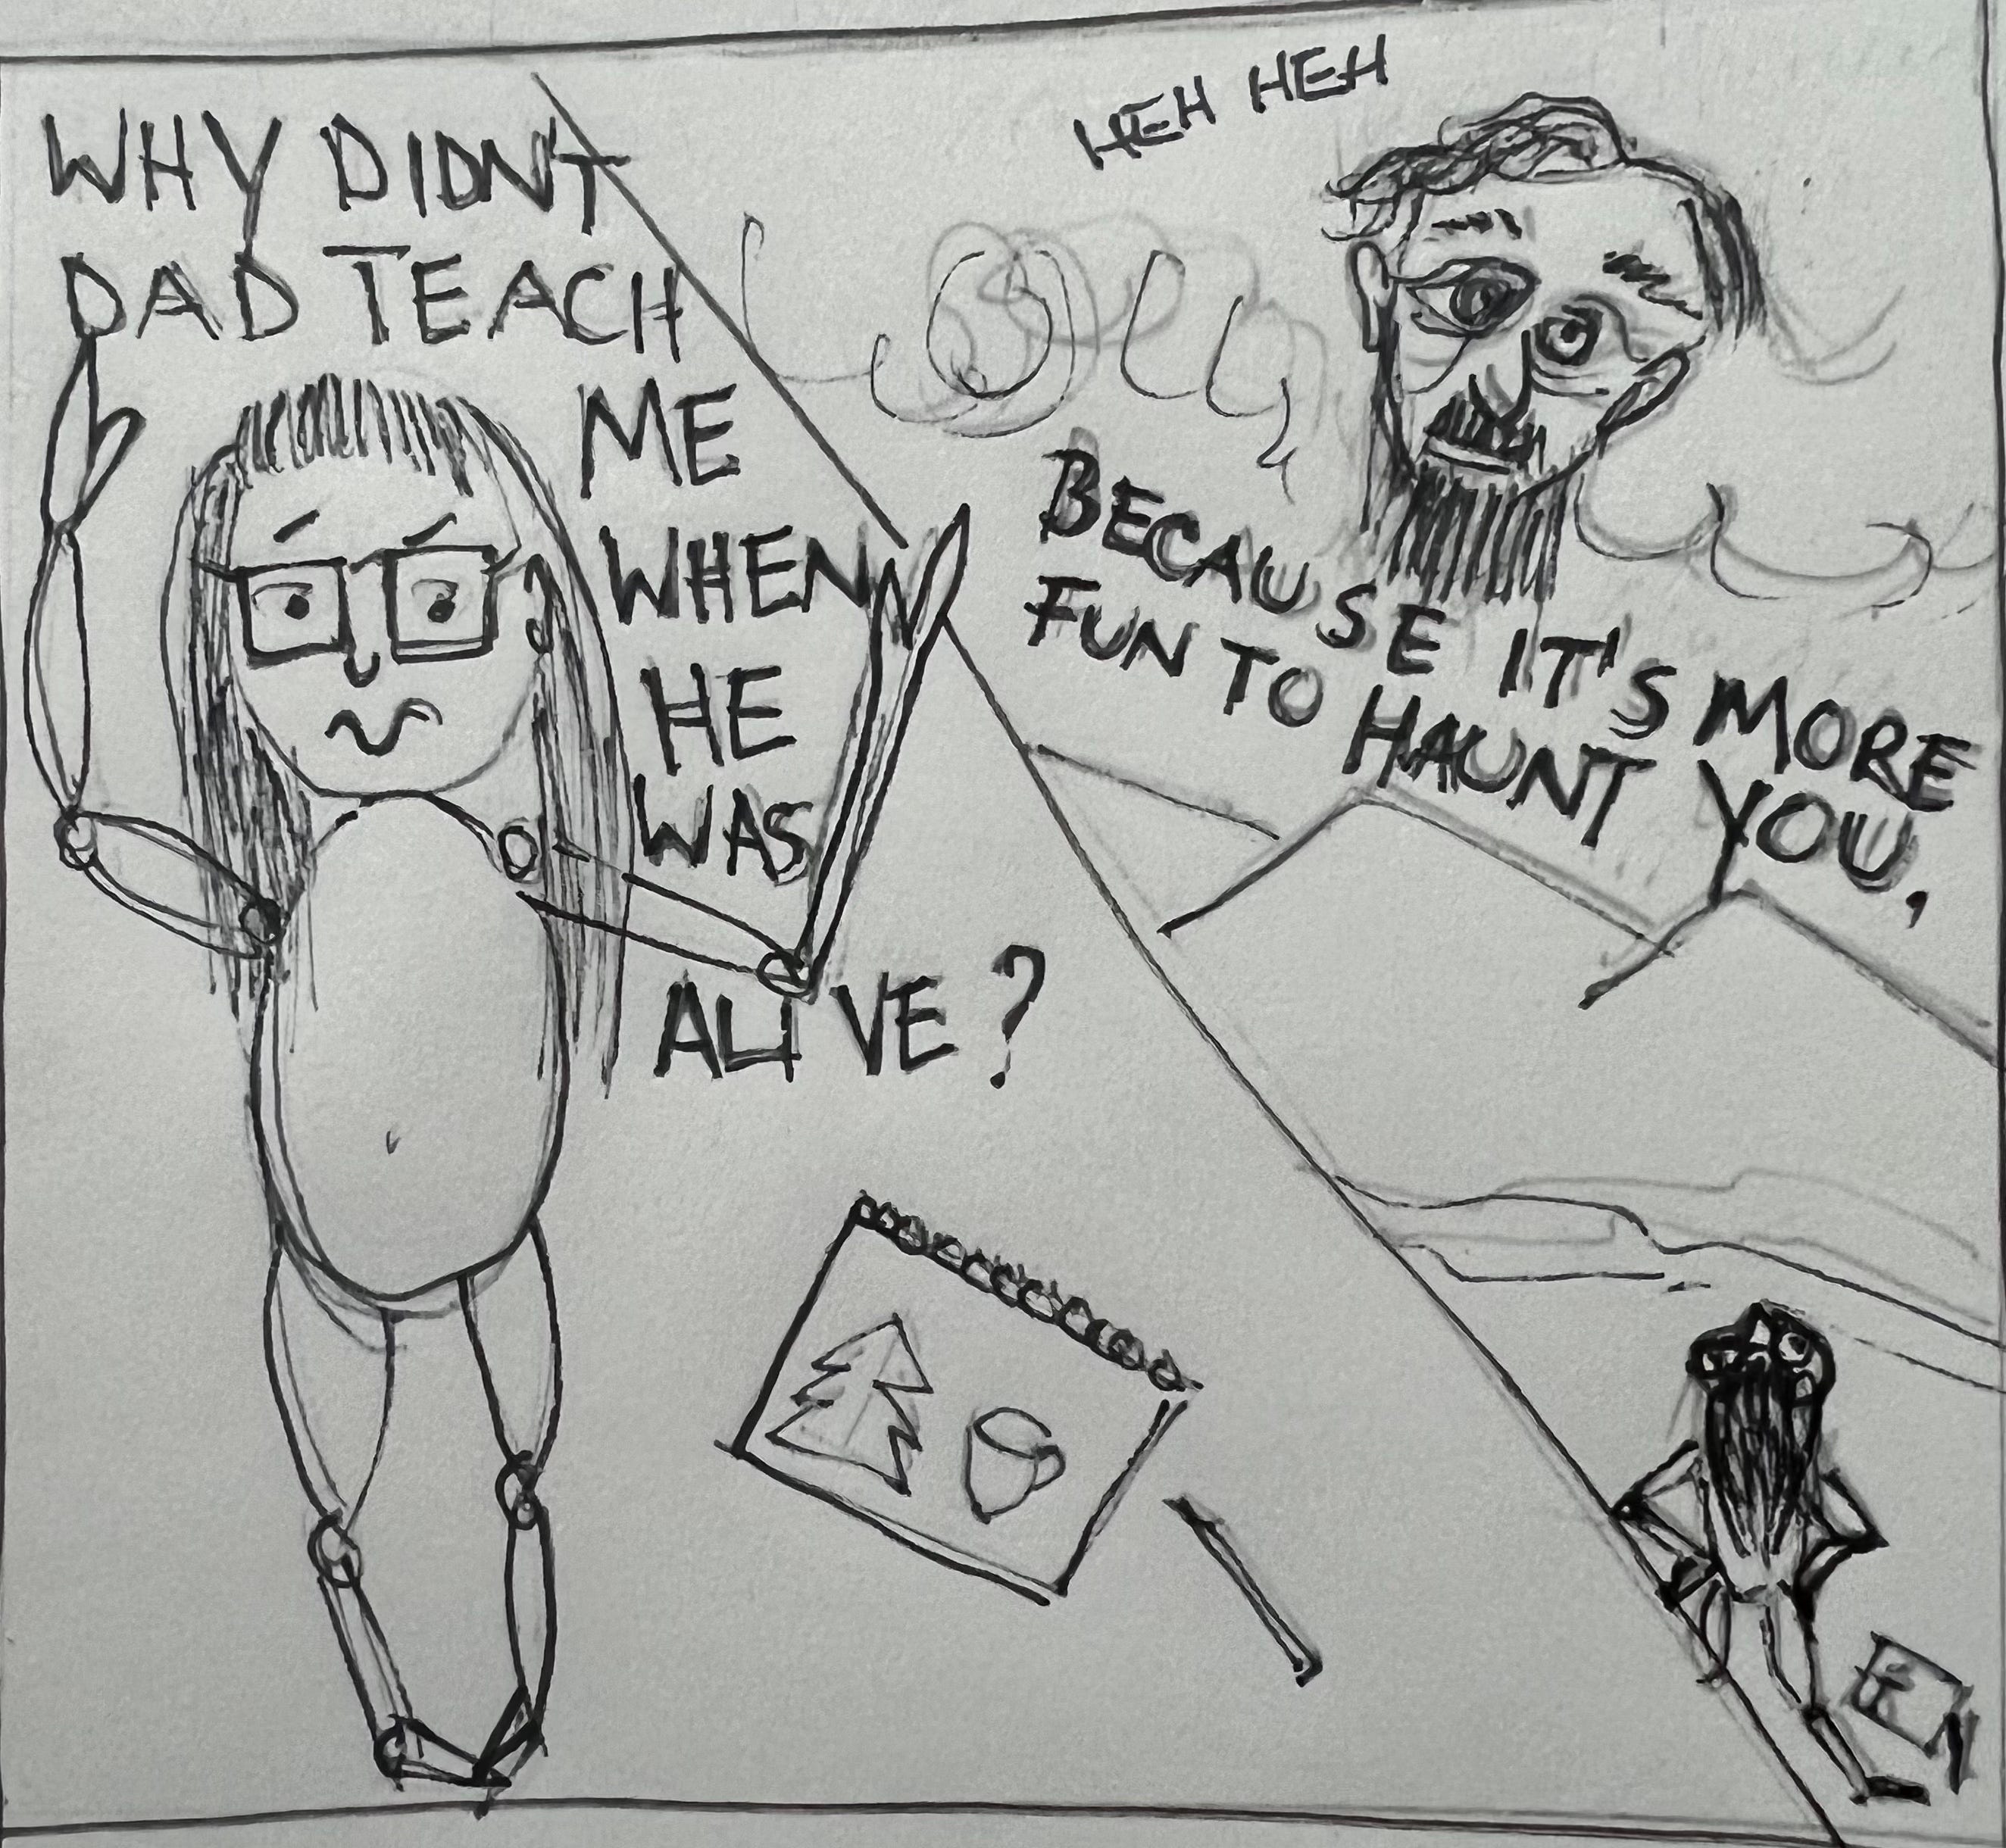 WHY DIDN'T
DAD TEACH
ME
WHEN
HE
WAS
ALIVE?
HEH HEH
BECAUSE IT'S MORE
FUN TO HAUNT YOU.